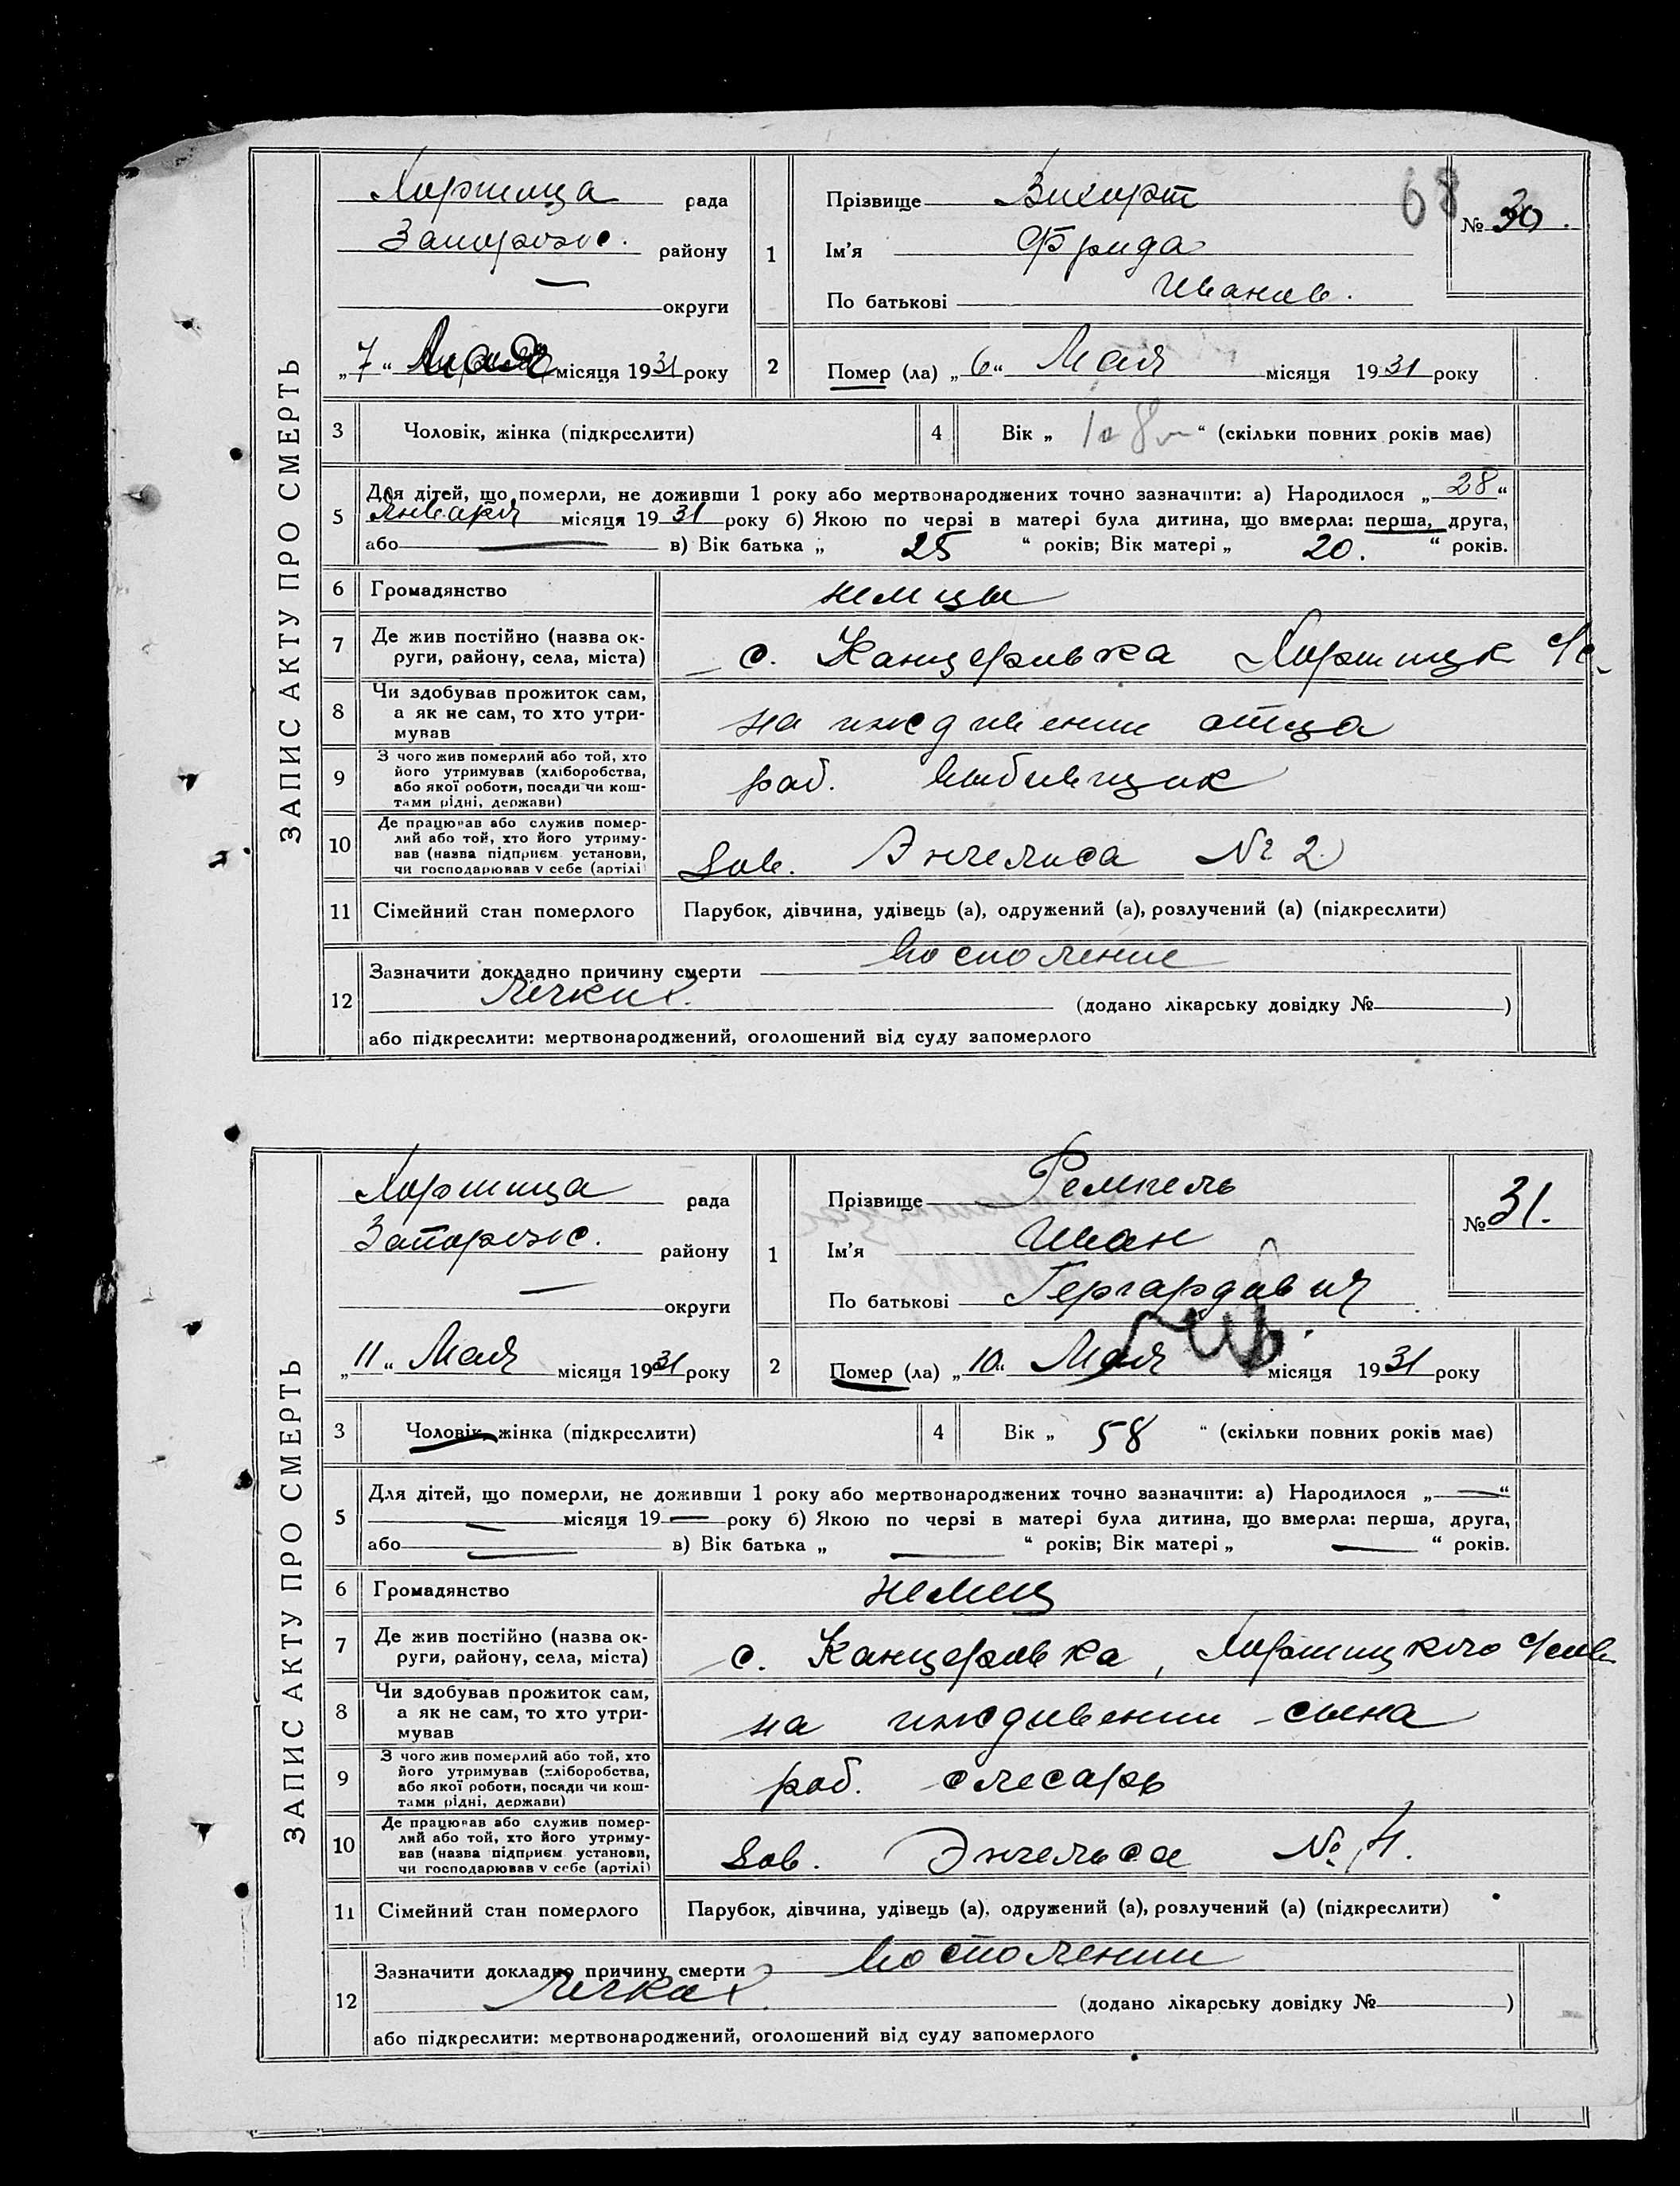 ЗАПИС АКТУ ПРО СМЕРТЬ
Хортица рада
Запорож. району
— округи
„7“ Мая місяця 1931 року
1
Прізвище Вихерт
Ім'я Фрида
По батькові Иванов.
68
№ 30.
2
Помер (ла) „6“ Мая місяця 1931 року
3 Чоловік, жінка (підкреслити)
4 Вік „ “ (скільки повних років має)
5 Для дітей, що померли, не доживши 1 року або мертвонароджених точно зазначити: а) Народилося „28“
Января місяця 1931 року б) Якою по черзі в матері була дитина, що вмерла: перша, друга,
або — в) Вік батька „ 25 “ років; Вік матері „ 20. “ років.
6 Громадянство немцы
7 Де жив постійно (назва округи, району, села, міста) с. Канцеровка Хортицк
8 Чи здобував прожиток сам, а як не сам, то хто утримував
на иждивении отца
9 З чого жив померлий або той, хто його утримував (хліборобства, або якої роботи, посади чи коштами рідні, держави)
раб.
10 Де працював або служив померлий або той, хто його утримував (назва підприєм. установи, чи господарював у себе (артілі)
Зав. Энгельса № 2
11 Сімейний стан померлого Парубок, дівчина, удівець (а), одружений (а), розлучений (а) (підкреслити)
12 Зазначити докладно причину смерти Восполение
легких. (додано лікарську довідку № )
або підкреслити: мертвонароджений, оголошений від суду запомерлого
ЗАПИС АКТУ ПРО СМЕРТЬ
Хортица рада
Запорож. району
— округи
„11“ Мая місяця 1931 року
1
Прізвище Ремпель
Ім'я Иван
По батькові Гергардович
№ 31.
2
Помер (ла) „10“ Мая місяця 1931 року
3 Чоловік, жінка (підкреслити)
4 Вік „ 58 “ (скільки повних років має)
5 Для дітей, що померли, не доживши 1 року або мертвонароджених точно зазначити: а) Народилося „—“
— місяця 19— року б) Якою по черзі в матері була дитина, що вмерла: перша, друга,
або — в) Вік батька „ — “ років; Вік матері „ — “ років.
6 Громадянство немец
7 Де жив постійно (назва округи, району, села, міста) с. Канцеровка, Хортицкого
8 Чи здобував прожиток сам, а як не сам, то хто утримував
на иждивении сына
9 З чого жив померлий або той, хто його утримував (хліборобства, або якої роботи, посади чи коштами рідні, держави)
раб. слесарь
10 Де працював або служив померлий або той, хто його утримував (назва підприєм. установи, чи господарював у себе (артілі)
Зав. Энгельса №
11 Сімейний стан померлого Парубок, дівчина, удівець (а), одружений (а), розлучений (а) (підкреслити)
12 Зазначити докладно причину смерти Восполении
легках. (додано лікарську довідку № )
або підкреслити: мертвонароджений, оголошений від суду запомерлого